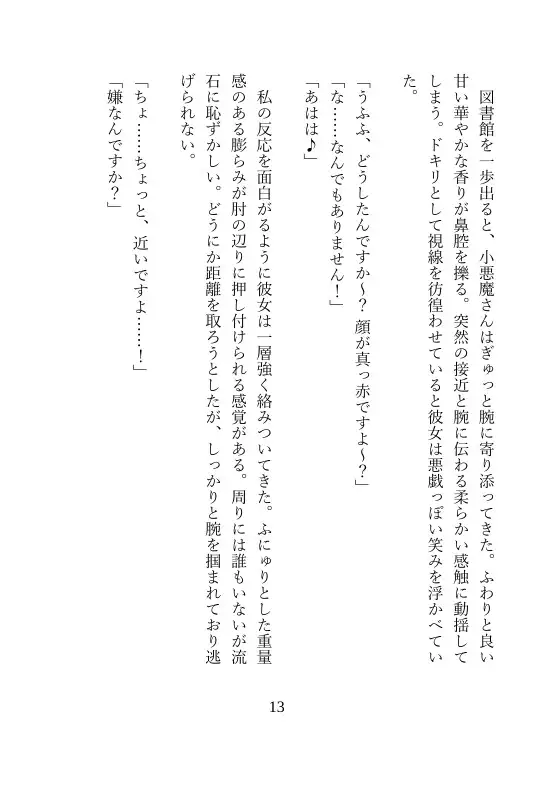 図書館を一歩出ると、小悪魔さんはぎゅっと腕に寄り添ってきた。ふわりと良い
甘い華やかな香りが鼻腔を擽る。突然の接近と腕に伝わる柔らかい感触に動揺して
しまう。ドキリとして視線を彷徨わせていると彼女は悪戯っぽい笑みを浮かべてい
た。
「うふふ、どうしたんですか～？ 顔が真っ赤ですよ～？」
「な……なんでもありません！」
「あはは♪」
　私の反応を面白がるように彼女は一層強く絡みついてきた。ふにゅりとした重量
感のある膨らみが肘の辺りに押し付けられる感覚がある。周りには誰もいないが流
石に恥ずかしい。どうにか距離を取ろうとしたが、しっかりと腕を掴まれており逃
げられない。
「ちょ……ちょっと、近いですよ……！」
「嫌なんですか？」
13